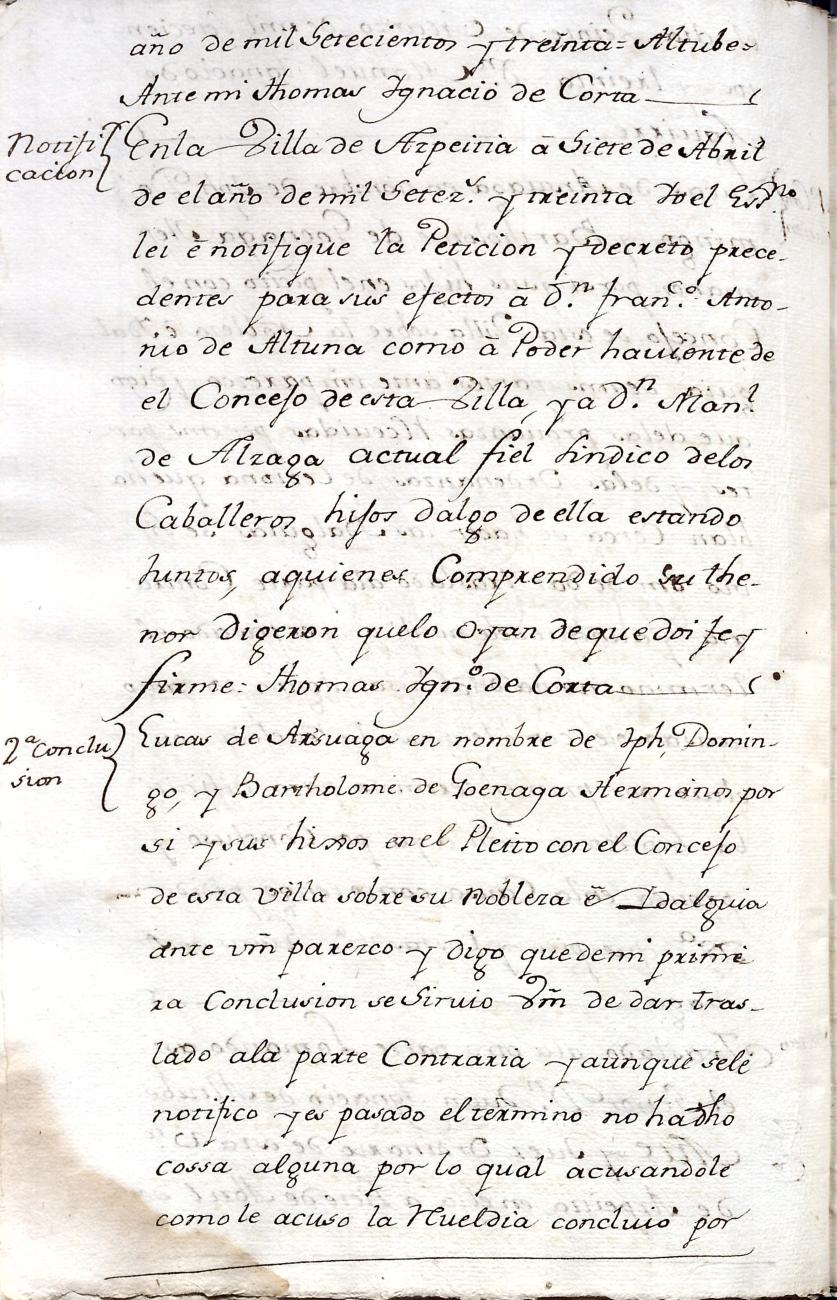 año de mil Setecientos y treinta = Altube =
Ante mi Thomas Ignacio de Corta
Notifi
cacion
En la Villa de Azpeitia â Siete de Abril
de el año de mil Setez.s y treinta Yo el Ess.no
lei ê notifique la Peticion y decreto prece-
dentes para sus efectos â D.n Fran.co Anto-
nio de Altuna como â Poder haviente de
el Concejo de esta Villa, y a D.n Man.l
de Alzaga actual fiel Sindico de los
Caballeros hijos dalgo de ella estando
Juntos, aquienes Comprendido su the-
nor digeron que lo oyan de que doi fe y
firme = Thomas Ign.o de Corta
2ª Conclu
sion
Lucas de Arsuaga en nombre de Jph, Domin-
go, y Bartholome de Goenaga Hermanos por
si y sus hixos en el Pleito con el Concejo
de esta Villa sobre su Nobleza ê Idalguia
ante vm̃ parezco y digo que de mi prime
ra Conclusion se Sirvio Vm̃ de dar tras-
lado ala parte Contraria y aunque sele
notifico y es pasado el termino no ha dho
cossa alguna por lo qual acusandole
como le acuso la Rueldia concluio por